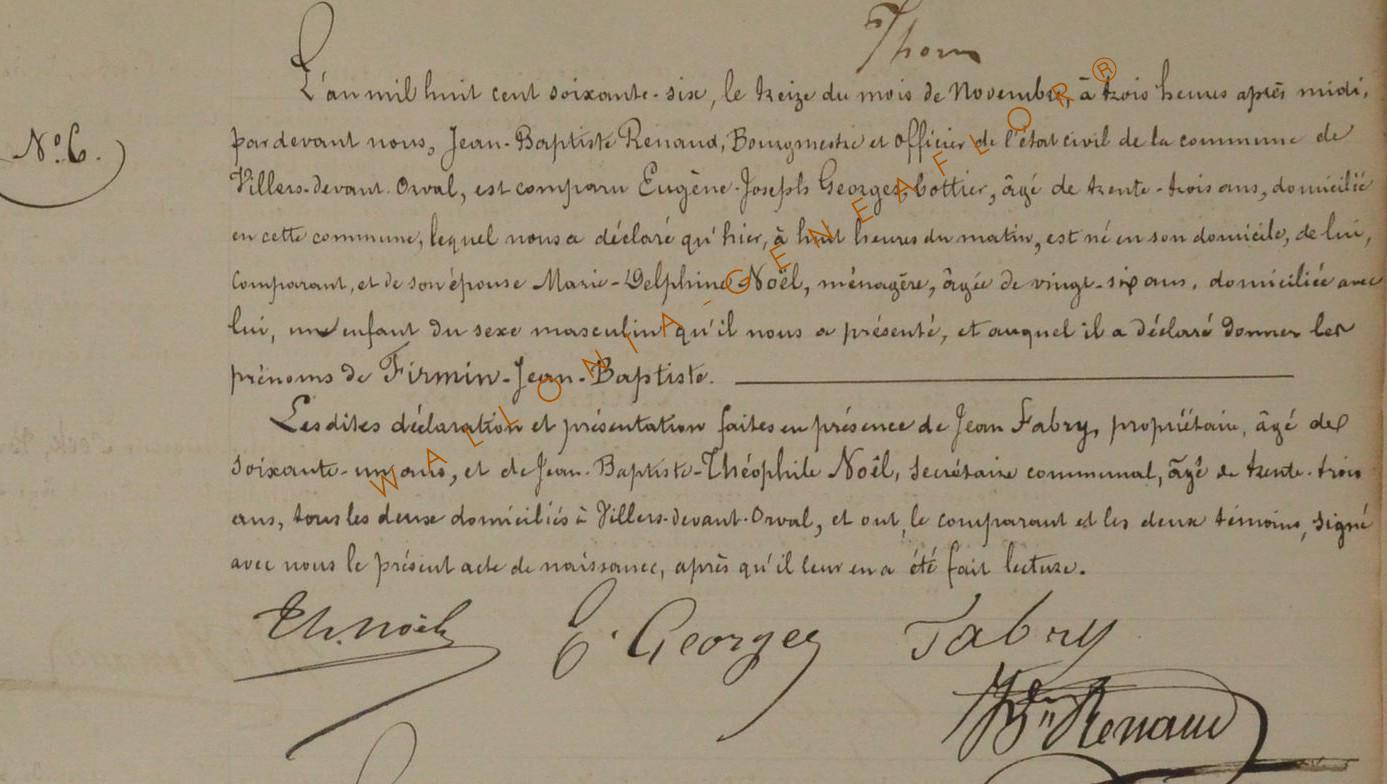 Thorn
L'an mil huit cent soixante-six, le treize du mois de Novembre, à trois heures après midi,
N° 6.
pardevant nous, Jean-Baptiste Renaud, Bourgmestre et officier de l'état civil de la commune de
Villers-devant-Orval, est comparu Eugène-Joseph Georges, cottier, âgé de trente-trois ans, domicilié
en cette commune, lequel nous a déclaré qu'hier, à huit heures du matin, est né en son domicile, de lui,
comparant, et de son épouse Marie-Delphine Noël, ménagère, âgée de vingt-six ans, domiciliée avec
lui, un enfant du sexe masculin qu'il nous a présenté, et auquel il a déclaré donner les
prénoms de Firmin-Jean-Baptiste.
Lesdites déclaration et présentation faites en présence de Jean Fabry, propriétaire, âgé de
soixante-un ans, et de Jean-Baptiste-Théophile Noël, secrétaire communal, âgé de trente-trois
ans, tous les deux domiciliés à Villers-devant-Orval, et ont, le comparant et les deux témoins, signé
avec nous le présent acte de naissance, après qu'il leur en a été fait lecture.
Th. Noël E. Georges Fabry
JBte Renaud
WALLONIA-GENEAFLOR®